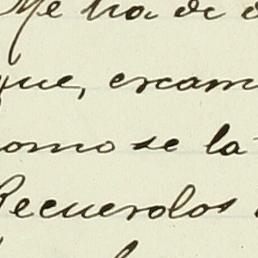 Me ha de
que, escam
como se la
Recuerdos